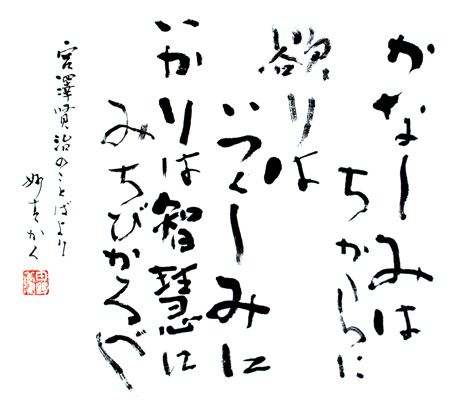 かなしみは
ちからに
欲りは
いつくしみに
いかりは智慧に
みちびかるべし
宮澤賢治のことばより
妙青かく